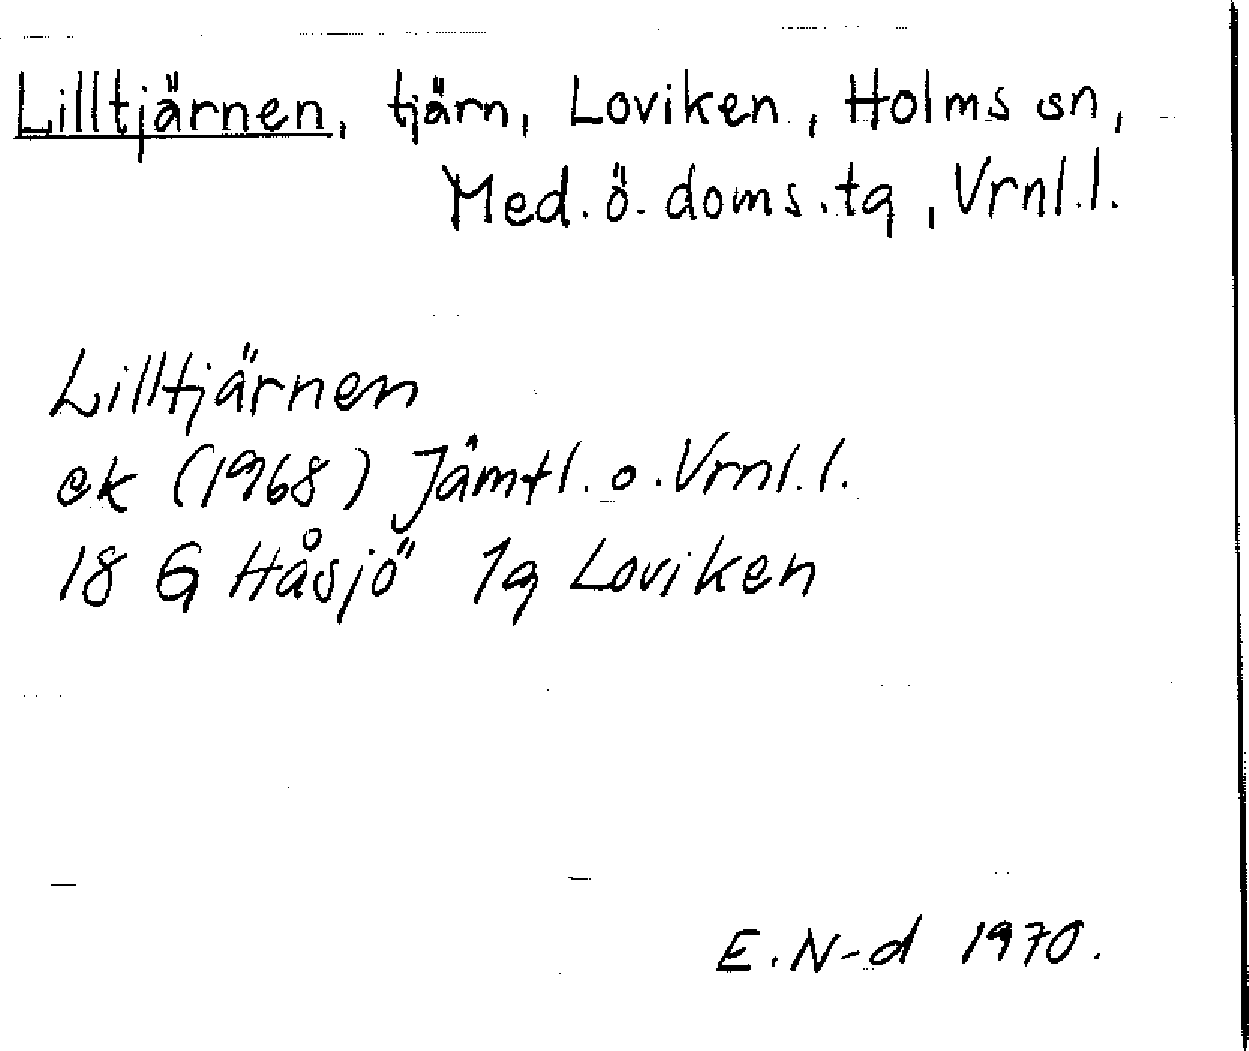 Lilltjärnen, tjärn, Loviken, Holms sn,
Med. ö. doms.tg, Vrnl.l.
Lilltjärnen
ek (1968) Jämtl. o. Vrnl. l.
18 G Håsjö 1g Loviken
E. N-d 1970.